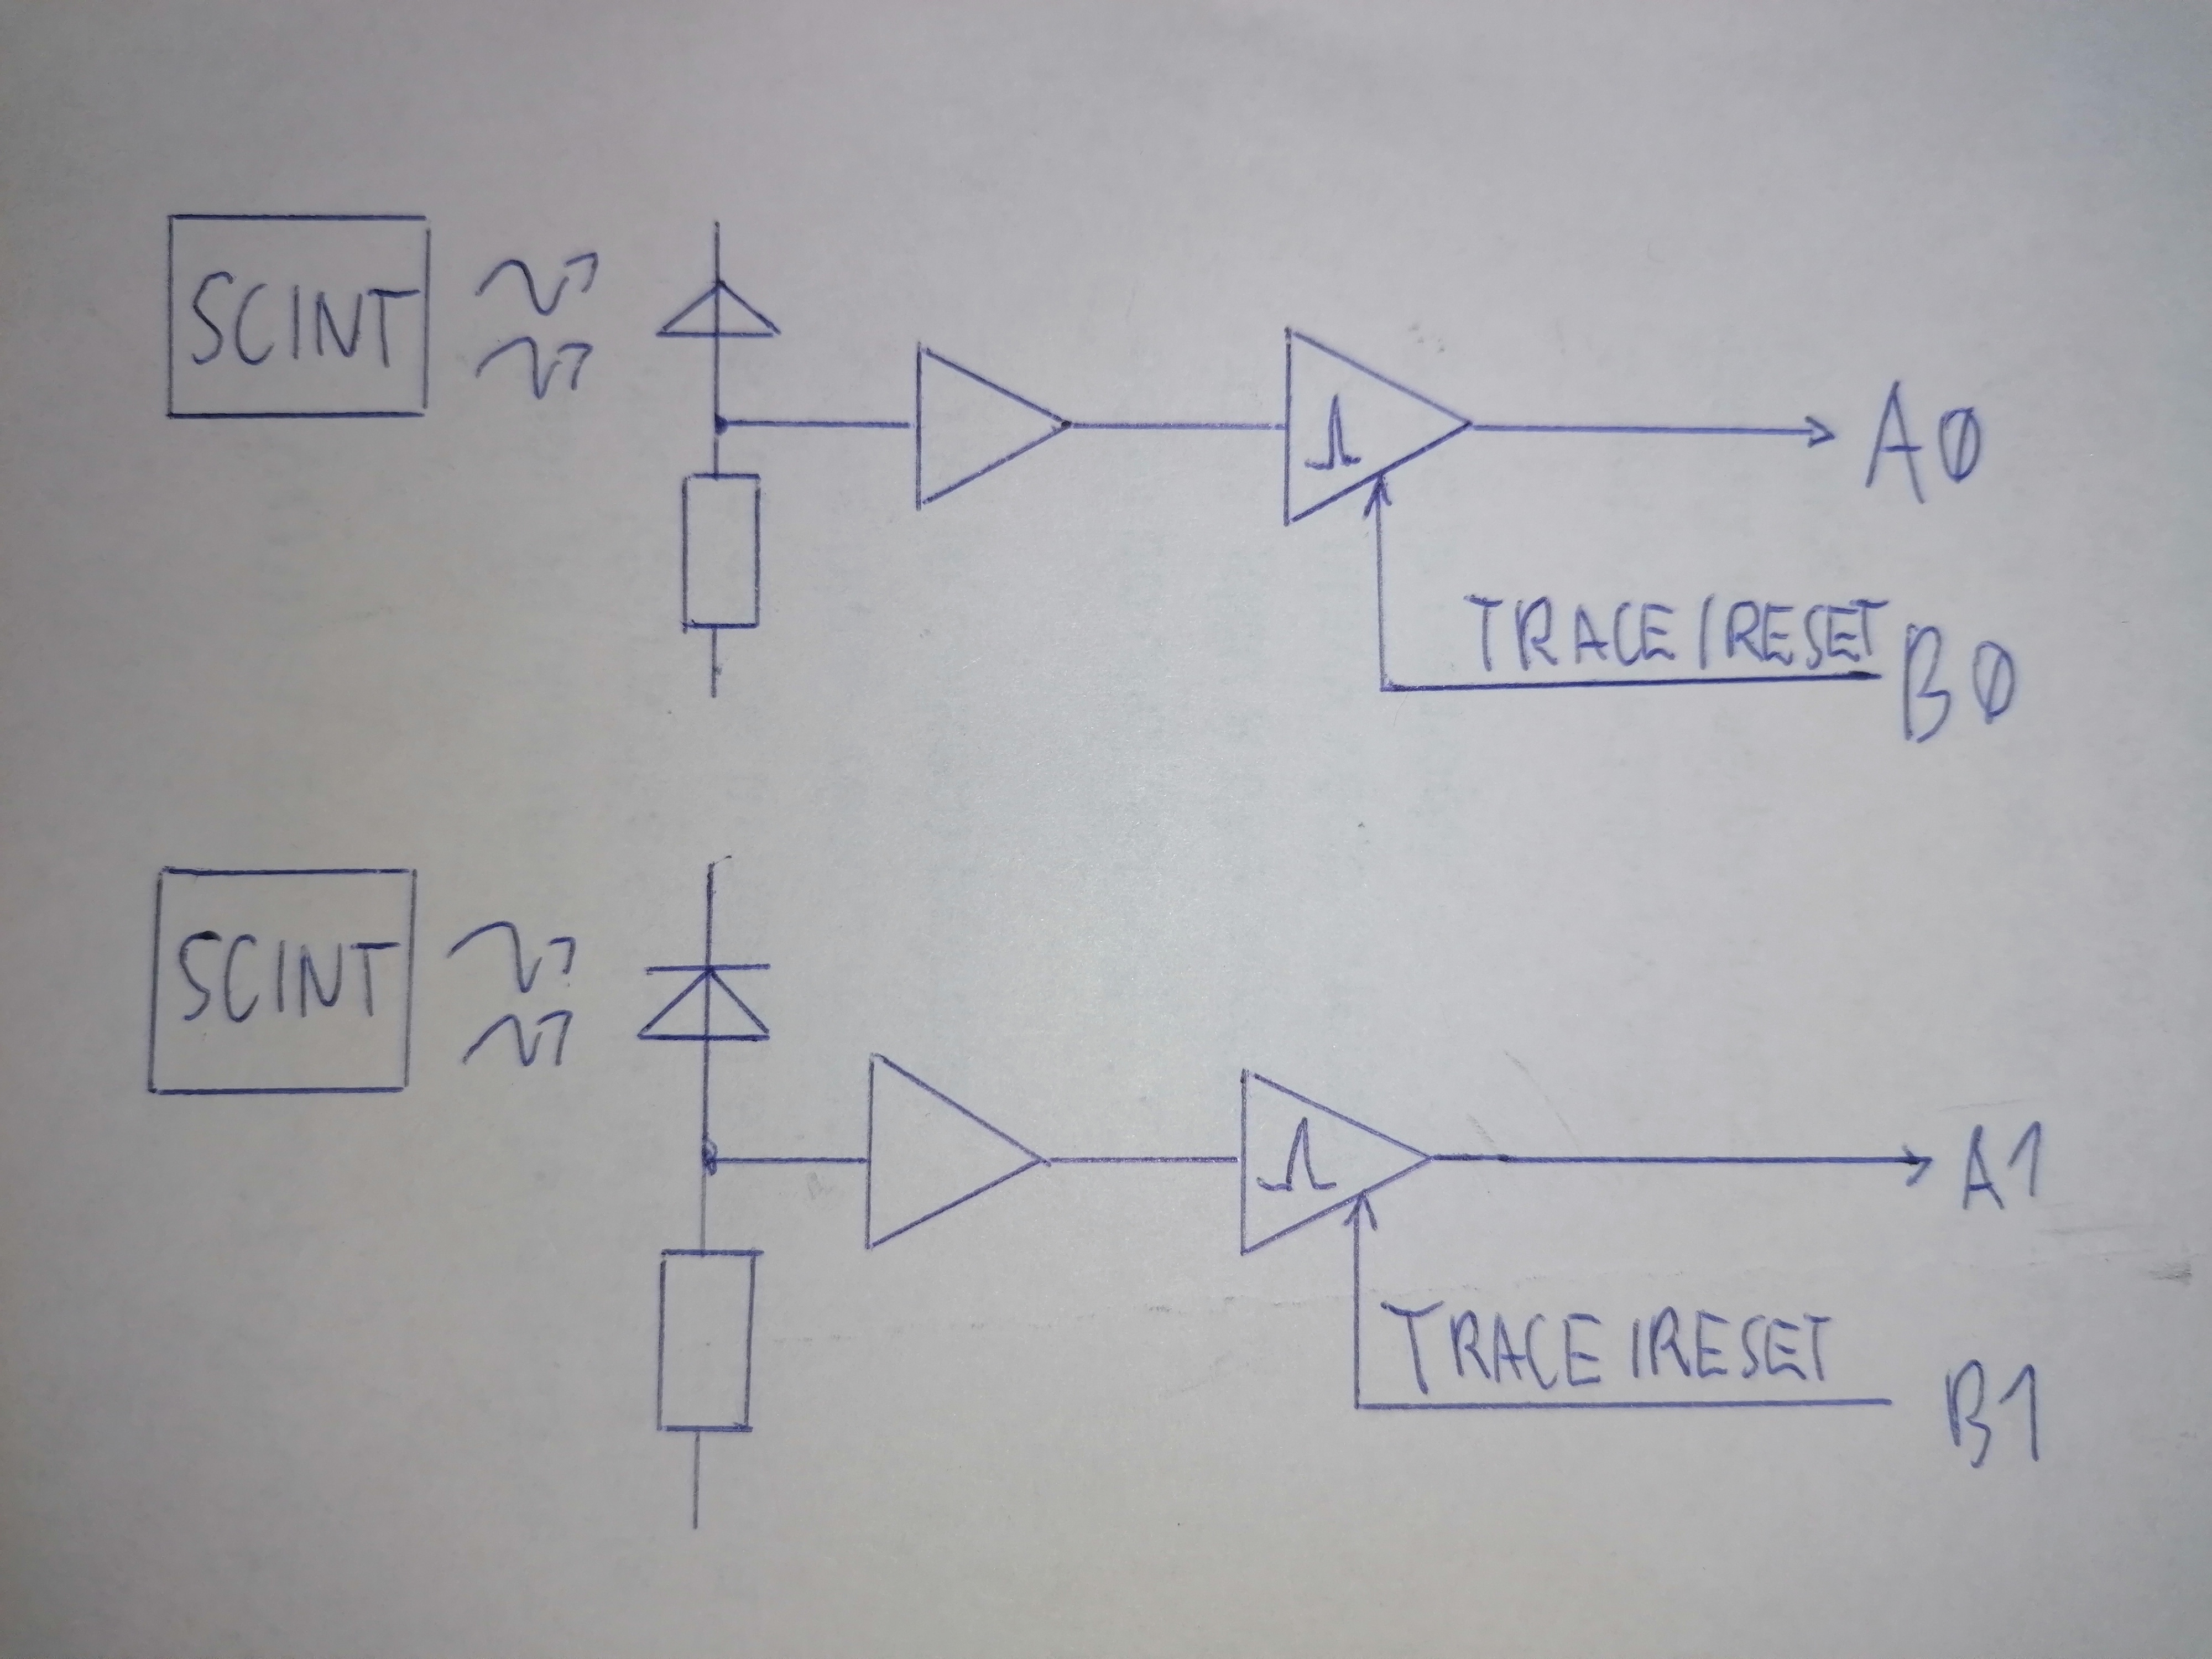 SCINT
A0
TRACE/RESET
B0
SCINT
A1
TRACE/RESET
B1